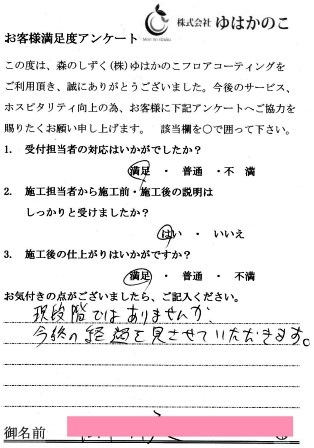 株式会社 ゆはかのこ
お客様満足度アンケート
この度は、森のしずく(株)ゆはかのこフロアコーティングを
ご利用頂き、誠にありがとうございました。今後のサービス、
ホスピタリティ向上の為、お客様に下記アンケートへご協力を
賜りたくお願い申し上げます。 該当欄を○で囲って下さい。
1. 受付担当者の対応はいかがでしたか?
満足 ・ 普通 ・不 満
2. 施工担当者から施工前・施工後の説明は
しっかりと受けましたか?
はい ・ いいえ
3. 施工後の仕上がりはいかがですか?
満足 ・ 普通 ・ 不満
お気付きの点がございましたら、ご記入ください。
現段階ではありませんが、
今後の経過を見させていただきます。
御名前